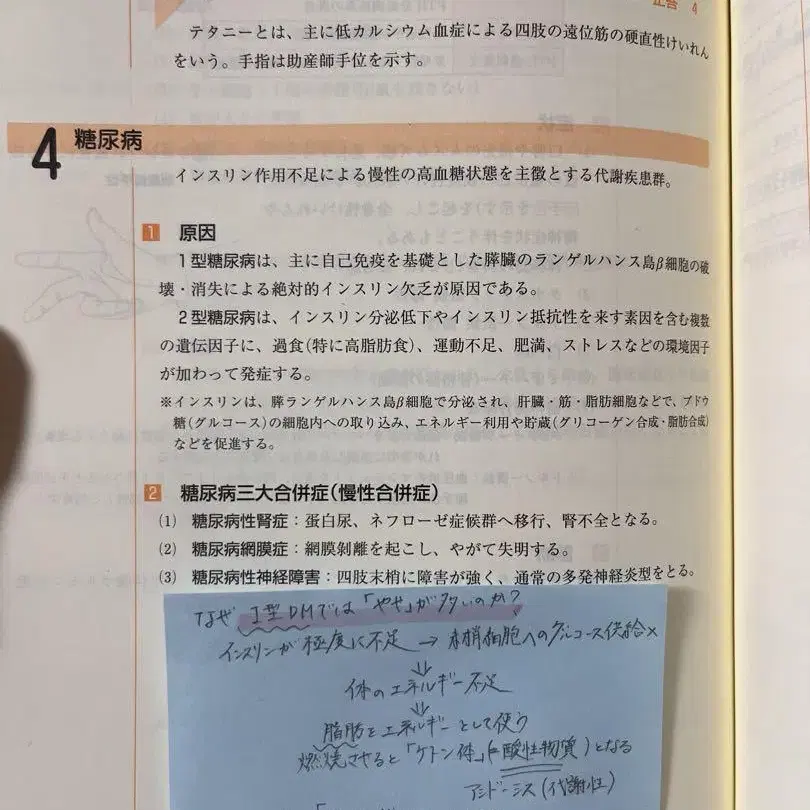 正答 4
テタニーとは、主に低カルシウム血症による四肢の遠位筋の硬直性けいれん
をいう。手指は助産師手位を示す。
4 糖尿病
インスリン作用不足による慢性の高血糖状態を主徴とする代謝疾患群。
1 原因
1型糖尿病は、主に自己免疫を基礎とした膵臓のランゲルハンス島β細胞の破
壊・消失による絶対的インスリン欠乏が原因である。
2型糖尿病は、インスリン分泌低下やインスリン抵抗性を来す素因を含む複数
の遺伝因子に、過食(特に高脂肪食)、運動不足、肥満、ストレスなどの環境因子
が加わって発症する。
※インスリンは、膵ランゲルハンス島β細胞で分泌され、肝臓・筋・脂肪細胞などで、ブドウ
糖(グルコース)の細胞内への取り込み、エネルギー利用や貯蔵(グリコーゲン合成・脂肪合成)
などを促進する。
2 糖尿病三大合併症(慢性合併症)
(1) 糖尿病性腎症：蛋白尿、ネフローゼ症候群へ移行、腎不全となる。
(2) 糖尿病網膜症：網膜剝離を起こし、やがて失明する。
(3) 糖尿病性神経障害：四肢末梢に障害が強く、通常の多発神経炎型をとる。
なぜ I型DMでは「やせ」が多いのか?
インスリンが極度に不足 → 末梢細胞へのグルコース供給×
⇓
体のエネルギー不足
⇓
脂肪をエネルギーとして使う
燃焼させると「ケトン体」(酸性物質)となる
アシドーシス(代謝性)